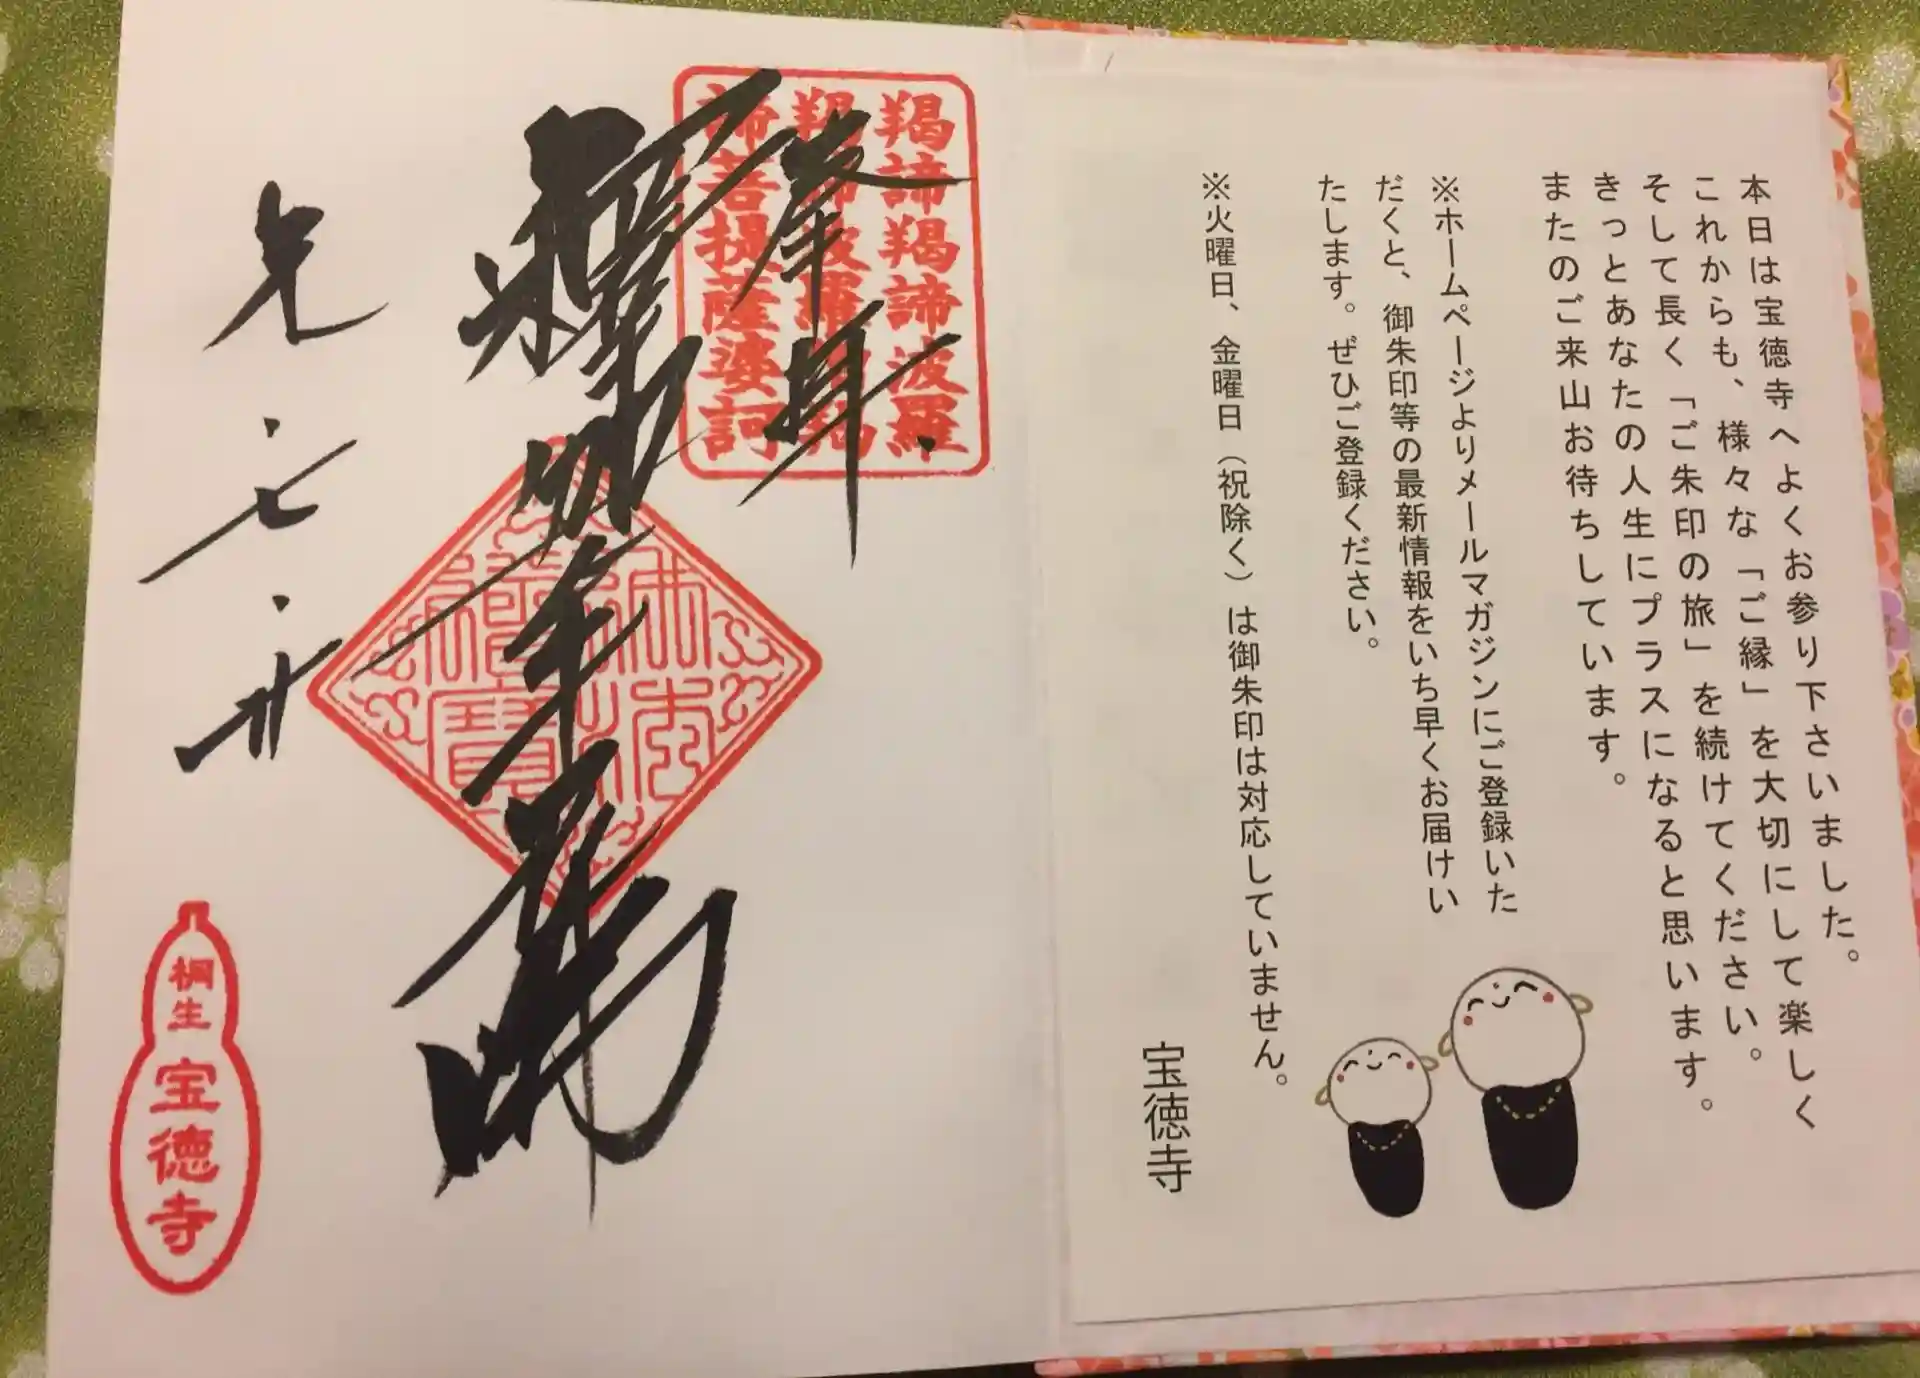 本日は宝徳寺へよくお参り下さいました。
これからも、様々な「ご縁」を大切にして楽しく
そして長く「ご朱印の旅」を続けてください。
きっとあなたの人生にプラスになると思います。
またのご来山お待ちしています。
※ホームページよりメールマガジンにご登録いた
だくと、御朱印等の最新情報をいち早くお届けい
たします。ぜひご登録ください。
※火曜日、金曜日（祝除く）は御朱印は対応していません。
宝徳寺
奉拝
羯諦羯諦波羅
羯諦波羅僧羯
諦菩提薩婆訶
釋迦牟尼佛
佛法
僧寶
元・七・廾
桐生
宝徳寺